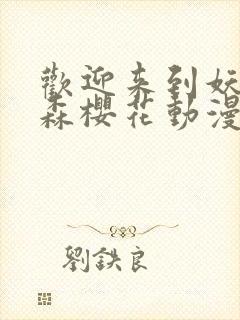 歡迎来到妖
森櫻花動漫
劉鉄良